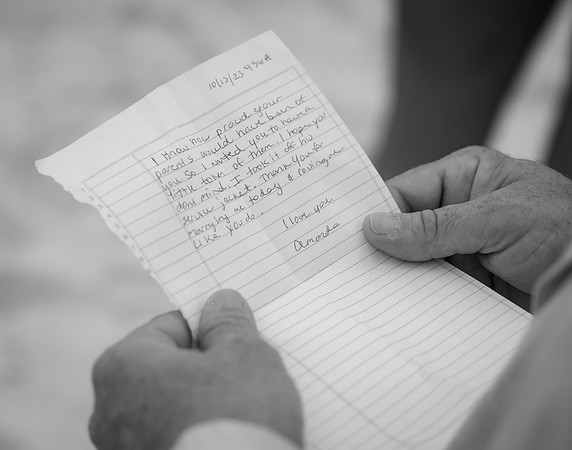 10/13/23
I know how proud your
parents would have been of
you so I wanted you to have a
little token of them. I hope you
dont mind. I took it off his
jacket. Thank you for
Marrying me today & loving me
Like you do.
I love you
Amanda